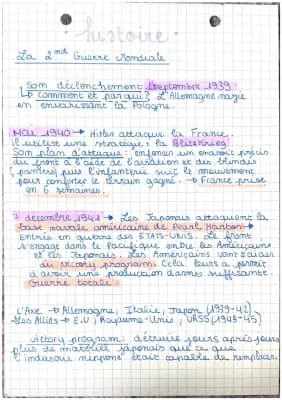 histoire
La 2nd Guerre Mondiale
Son déclenchement 1septembre 1939
↳ Comment et par qui ? L'Allemagne nazie
en envahissant la Pologne.
Mai 1940 → Hitler attaque la France.
Il utilise une stratégie : la Blitzkrieg.
Son plan d'attaque : enfoncer un endroit précis
du front à l'aide de l'aviation et des blindés
(panzers) puis l'infanterie suit le mouvement
pour conforter le terrain gagné. → France prise
en 6 semaines.
7 décembre 1941 → Les Japonais attaquent la
base navale américaine de Pearl Harbor →
Entrée en guerre des ETATS-UNIS. Le front
s'engage dans le Pacifique entre les Américains
et les Japonais. Les Américains vont s'aider
du victory program. Cela leurs a permit
d'avoir une production d'armes suffisante.
Guerre totale.
L'Axe → Allemagne, Italie, Japon (1939-42)
Les Alliés → E.U, Royaume-Unis, URSS (1943-45)
victory program : détruire jours après jours
plus de matériels japonais que ce que
l'industrie nippone était capable de remplacer.